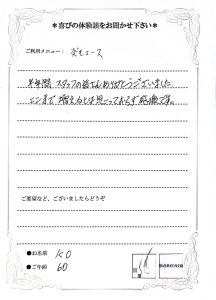 ＊喜びの体験談をお聞かせ下さい＊
ご利用メニュー： 発毛コース
半年間 スタッフの皆さんありがとうございました。
ここまで増えるとは思っておらず感激です。
ご要望など、ございましたらどうぞ
●お名前 K.O
●ご年齢 60